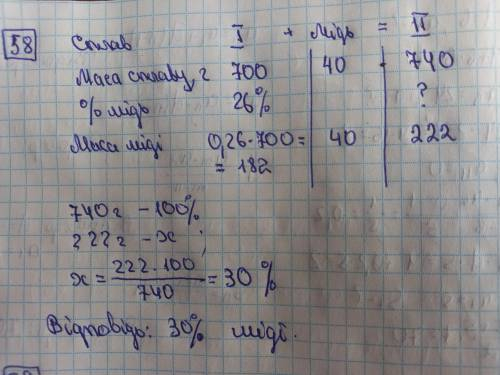 58 Сплав I + мідь = II
Маса сплаву, г 700 40 740
% мідь 26% ?
Маса міді 0,26·700= 40 222
= 182
740г - 100%
222г - x ;
x = 222·100 / 740 = 30 %
Відповідь: 30% міді.